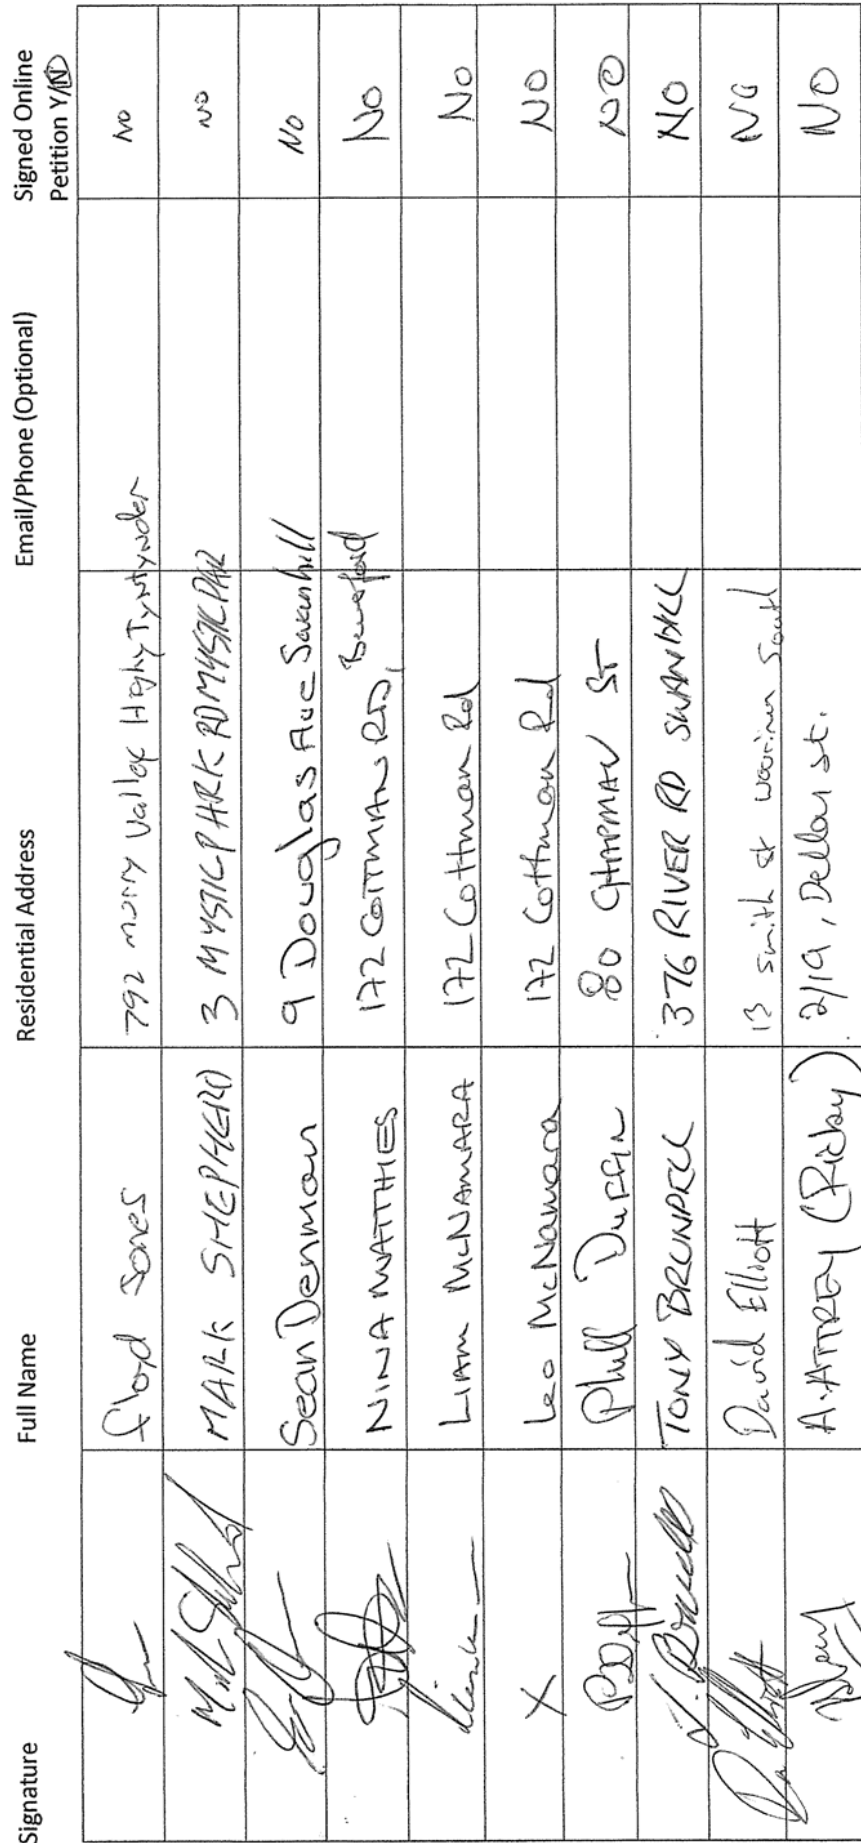 Signature Full Name Residential Address Email/Phone (Optional) Signed Online Petition Y/N
floyd Jones 792 murry valley Highy Tyntynder No
MARK SHEPHERD 3 MYSTIC PARK RD MYSTIC PARK NO
Sean Denman 9 Douglas Ave Swanhill NO
NINA MATTHIES 172 COTTMAN RD, No
LIAM McNAMARA 172 Cottman Rd No
X Leo McNamara 172 Cottman Rd NO
Phill Duffin 80 CHAPMAN ST NO
TONY BRUNDELL 376 RIVER RD SWANHILL NO
David Elliott 13 smith st woorinen South NO
A. ATTREY (Rickby) 2/19, Dellar st. NO